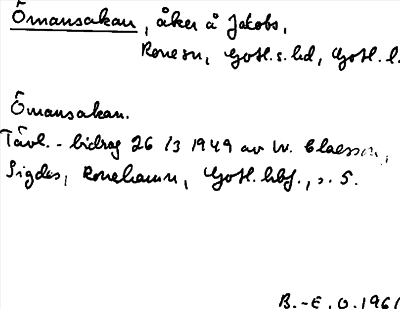 Ömansakan, åker å Jakobs,
Ronesn, Gotl. s. hd, Gotl. l.
Ömansakan.
Tävl.-bidrag 26/3 1949 av W. Claesson,
Sigdes, Ronehamn, Gotl. hbf., s. 5.
B.-E. O. 1961